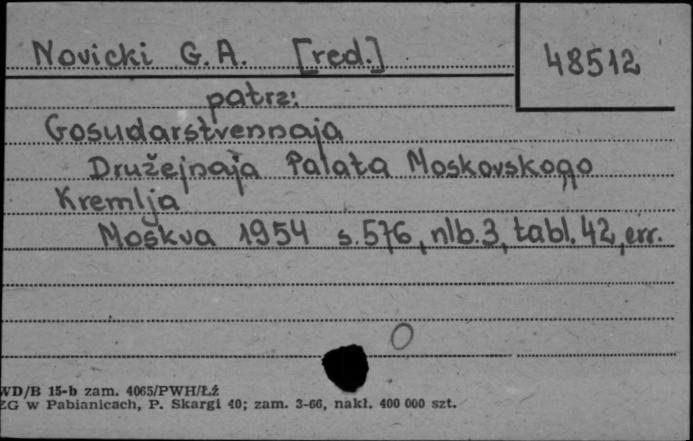 Novicki G.A. [red.]
48512
patrz:
Gosudarstvennaja
Družejnaja Palata Moskovskogo
Kremlja
Moskva 1954 s.576, nlb.3, tabl.42, err.
WD/B 15-b zam. 4065/PWH/Łź
ZG w Pabianicach, P. Skargi 40; zam. 3-66, nakł. 400 000 szt.